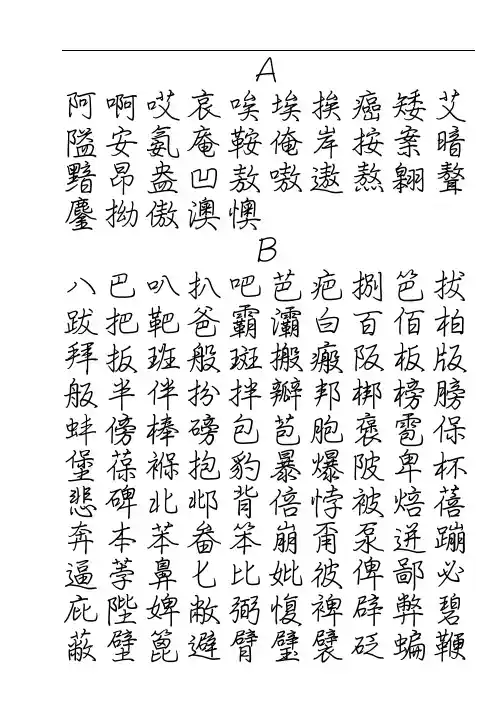 A
阿啊哎哀唉埃挨癌矮艾
隘安氨庵鞍俺岸按案暗
黯昂盎凹敖嗷遨熬翱聱
鏖拗傲澳懊
B
八巴叭扒吧芭疤捌笆拔
跋把靶爸霸灞白百佰柏
拜扳班般斑搬瘢阪板版
舨半伴扮拌瓣邦梆榜膀
蚌傍棒磅包苞胞褒雹保
堡葆褓抱豹暴爆陂卑杯
悲碑北邶背倍悖被焙蓓
奔本苯畚笨崩甭泵迸蹦
逼荸鼻匕比妣彼俾鄙必
庇陛婢敝弼愎裨辟弊碧
蔽壁篦避臂璧襞砭蝙鞭